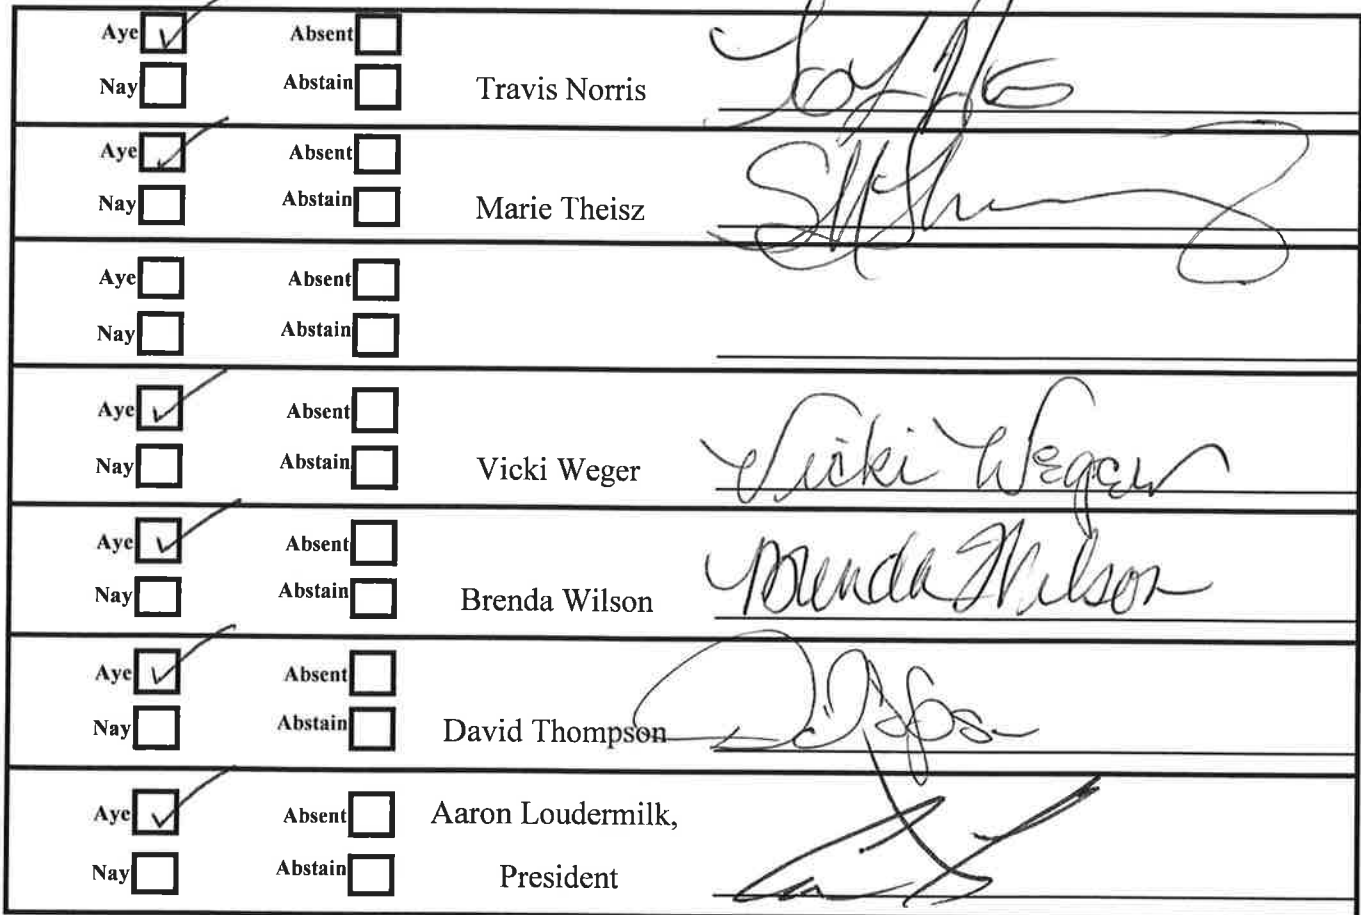 Aye ✓ Absent
Nay Abstain Travis Norris
Aye ✓ Absent
Nay Abstain Marie Theisz
Aye Absent
Nay Abstain
Aye ✓ Absent
Nay Abstain Vicki Weger Vicki Weger
Aye ✓ Absent
Nay Abstain Brenda Wilson Brenda Wilson
Aye ✓ Absent
Nay Abstain David Thompson
Aye ✓ Absent Aaron Loudermilk,
Nay Abstain President